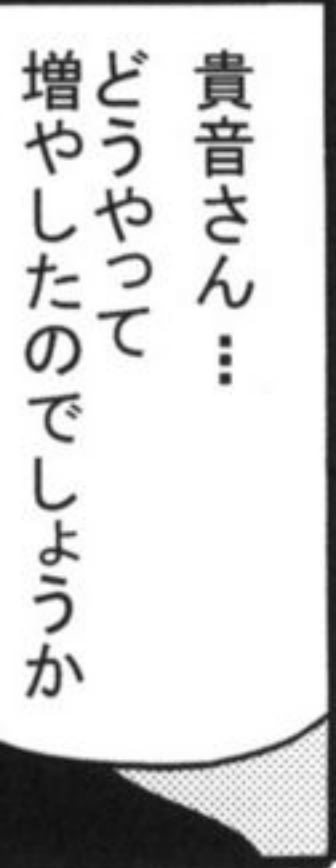 貴音さん…
どうやって
増やしたのでしょうか